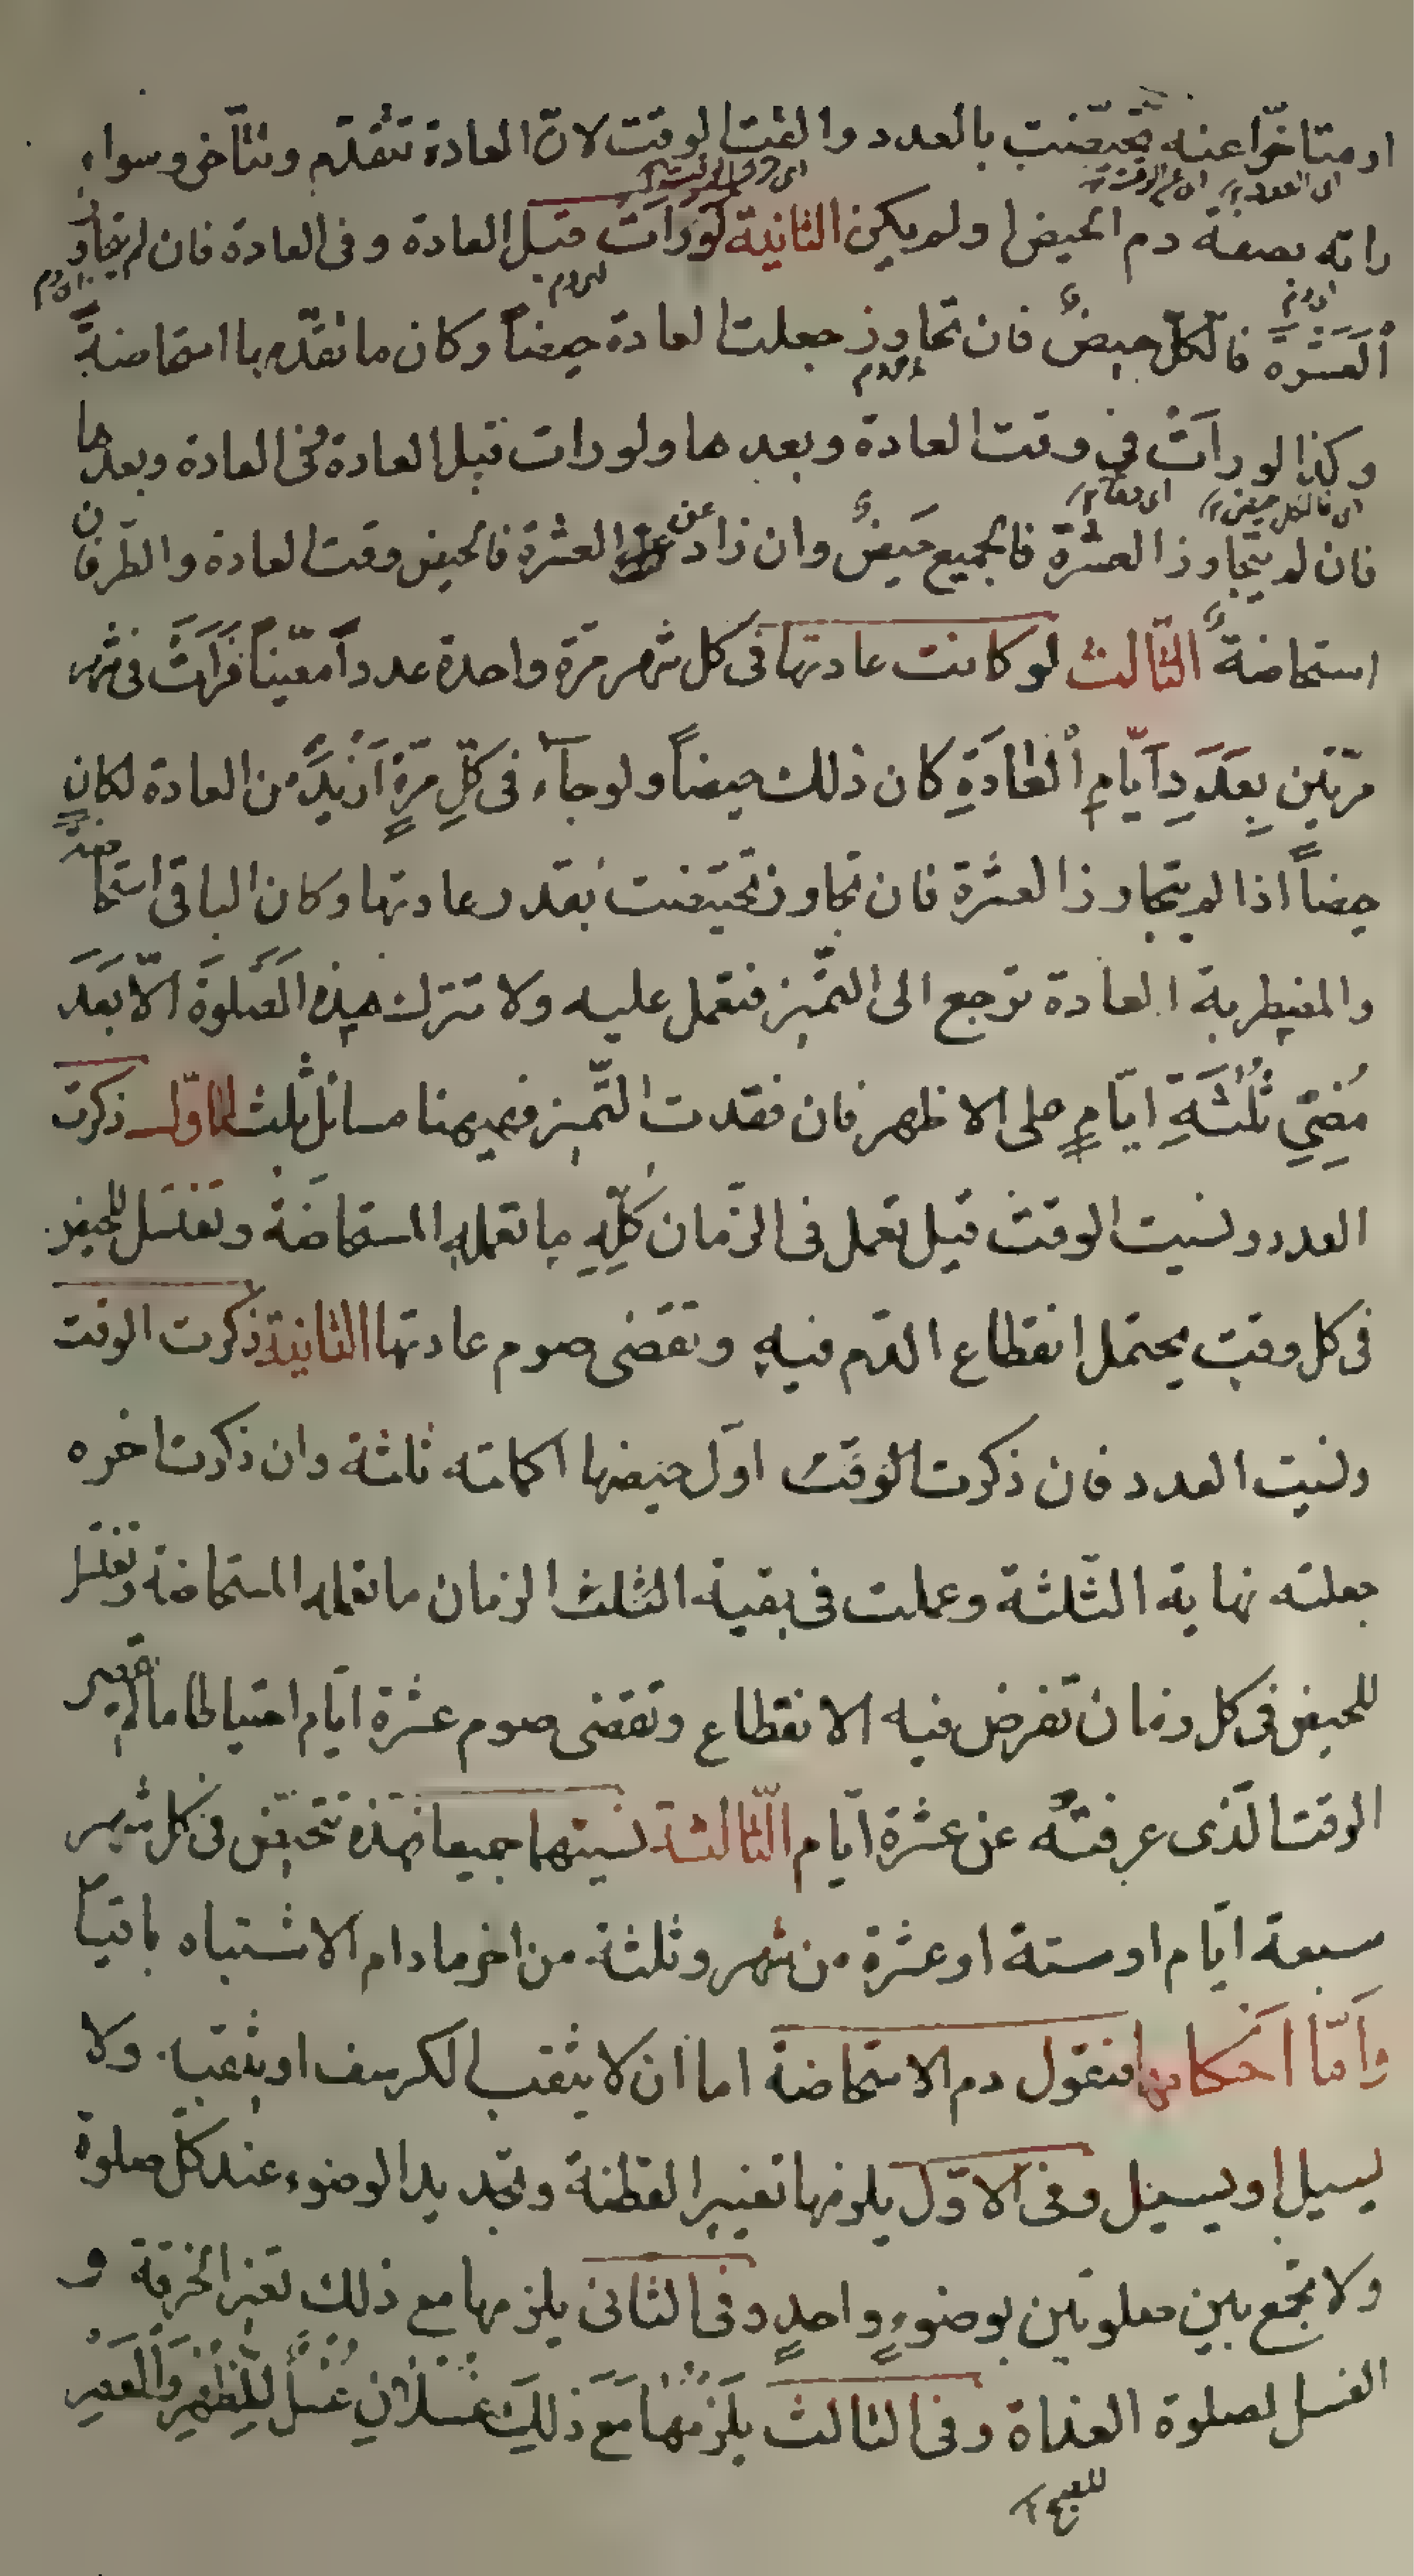 او متاخّرا عنه تحیّضت بالعدد والقت الوقت لانّ العادة تتقدّم وتتأخّر وسواء
راته بصفة دم الحیض او لم یکن الثانیة لو رَاَت قبل العادة و فی العادة فان لم یتجاوز
العَشَرَةَ فالکلّ حیضٌ فان تجاوز جعلت العادة حیضاً وکان ما تقدّمها استحاضةً
وکذا لو راَتْ فی وقت العادة و بعدها ولو رات قبل العادة وفی العادة وبعدها
فان لم یتجاوز العشرة فالجمیع حَیضٌ وان زاد عن العشرة فالحیض وقت العادة والطّرفان
استحاضةٌ الثّالث لو کانت عادتها فی کل شهر مرّة واحدة عدداً معیّناً فَرَاَتْ فی شهر
مرّتین بِعَدَدِ اَیّامِ الْعَادَةِ کان ذلک حیضاً ولو جآء فی کُلِّ مَرّةٍ اَزْیَدَ من العادة لکان
حیضاً اذا لم یتجاوز العشرة فان تجاوز تحیّضت بقدر عادتها وکان الباقی استحاضةً
والمضطربة العادة ترجع الی التمّیز فتعمل علیه ولا تترک هذه الصَّلوةَ الّا بَعدَ
مُضِیِّ ثَلٰثَةِ ایّامٍ علی الاظهر فان فقدت التّمیز فهیهنا مسائل ثلث الاوّلی ذکرت
العدد ونسیت الوقت قیل تعمل فی الزّمان کلِّهِ ما تعمله المستحاضة وتغتسل للحیض
فی کل وقت یحتمل انقطاع الدّم فیه وتقضی صوم عادتها الثانیة ذکرت الوقت
ونسیت العدد فان ذکرت الوقت اوّل حیضها اکملته ثلثة وان ذکرت اخره
جعلته نهایة الثّلثة وعملت فی بقیة الثلث الزمان ما تعمله المستحاضة وتغتسل
للحیض فی کل زمان تفرض فیه الانقطاع وتقضی صوم عشرة ایّام احتیاطا ما لم یقصر
الوقت الّذی عرفتْه عن عشرة ایّام الثّالثة نسیتهما جمیعا فهذه تتحیّض فی کل شهر
سبعة ایّام او ستة او عشرة من شهر وثلثة من اخر ما دام الاشتباه باقیاً
وَاَمّا اَحْکَامها فنقول دم الاستحاضة اما ان لا یثقب الکرسف او یثقبه ولا
یسیل او یسیل وفی الاوّل یلزمها تغییر القطنة وتجدید الوضوء عند کلّ صلوة
ولا تجمع بین صلوتین بوضوءٍ واحدٍ وفی الثانی یلزمها مع ذلک تغیر الخرقة و
الغسل لصلوة الغداة وفی الثالث یلزَمُهَا مَعَ ذلِکَ غُسْلَانِ غُسْلٌ لِلظُّهْرِ وَالْعَصْرِ